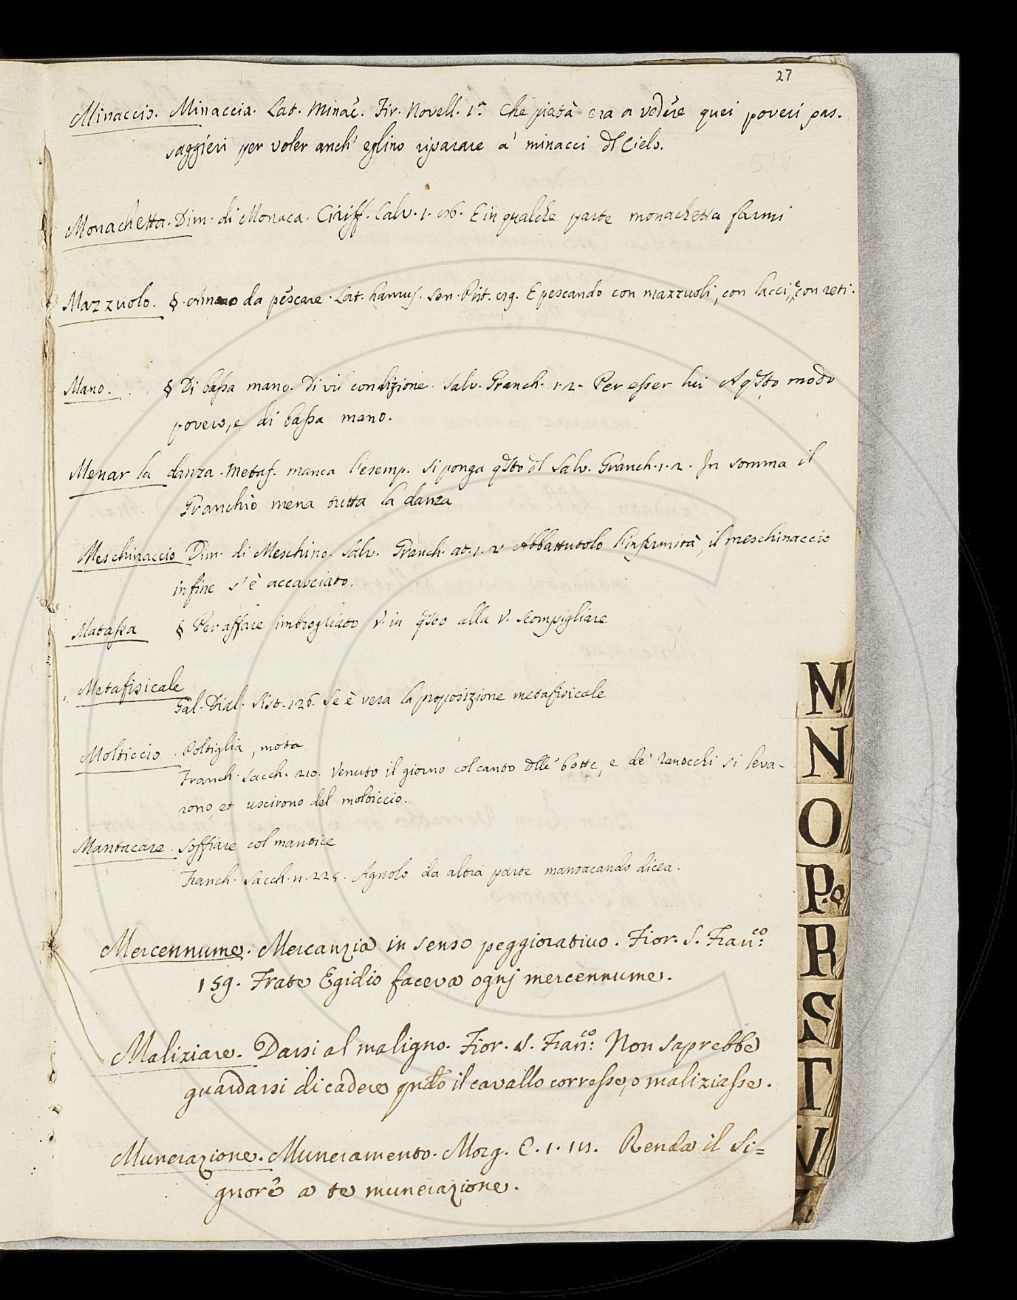 27
Minaccio. Minaccia. Lat. Minae. Fir. Novell. 1.ª Che pietà era a vedere quei poveri pas-
saggieri per voler anch' eglino riparare a' minacci dl Cielo.
Monachetta. Dim. di Monaca. Ciriff. Calv. 1. E in qualche parte monachetta farmi
Mazzuolo. § da pescare. Lat. hamus. Sen. Pist. E pescando con mazzuoli, con lacci, e con reti.
Mano. § Di bassa mano. Di vil condizione. Salv. Granch. 1. 2. Per esser lui qsto modo
povero, e di bassa mano.
Menar la danza. Metaf. manca l'esemp. si ponga qsto dl Salv. Granch. 1. 2. In somma il
Granchio mena tutta la danza
Meschinaccio Dim. di Meschino. Salv. Granch. at. 1. 2. Abbattutolo l'infermità, il meschinaccio
infine s'è accasciato.
Matassa § Per affare imbrogliato V. in qsto alla V. Scompigliare
Metafisicale
Gal. Dial. Sist. 126. Se è vera la proposizione metafisicale
Molticcio. Poltiglia, mota
Franch. Sacch. 210. Venuto il giorno col canto dlle botte, e de' ranocchi si leva-
rono et uscirono del molticcio.
Mantacare. Soffiare col mantice
Franch. Sacch. n. 225. Agnolo da altra parte mantacando dicea.
Mercennume. Mercanzia in senso peggiorativo. Fior. S. Fran.co
159. Frate Egidio faceva ognj mercennume.
Maliziare. Darsi al maligno. Fior. S. Fran.co Non saprebbe
guardarsi di cadere qndo il cavallo corresse, o maliziasse.
Munerazione. Muneramento. Morg. C. 1. 111. Renda il Si=
gnore a te munerazione.
M
N
O
P.Q
R
S
T
V
Z